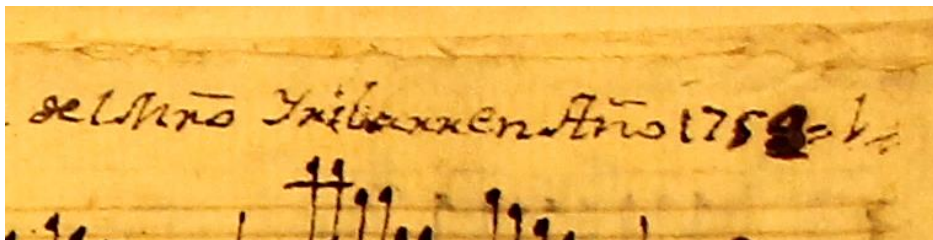 del Mrõ Yribarren Año